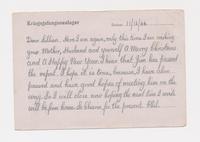 Kriegsgefangenenlager
Datum: 11/12/44
Dear Lillian. Here I am again, only this time I am wishing
your Mother, Husband and yourself A Merry Christmas
and A Happy New Year. I hear that Jim has passed
the exam. I hope it is true, because I have also
passed and have great hopes of meeting him on the
way. So I will close now hoping the next time I write
will be from home. So Cheerio for the present.